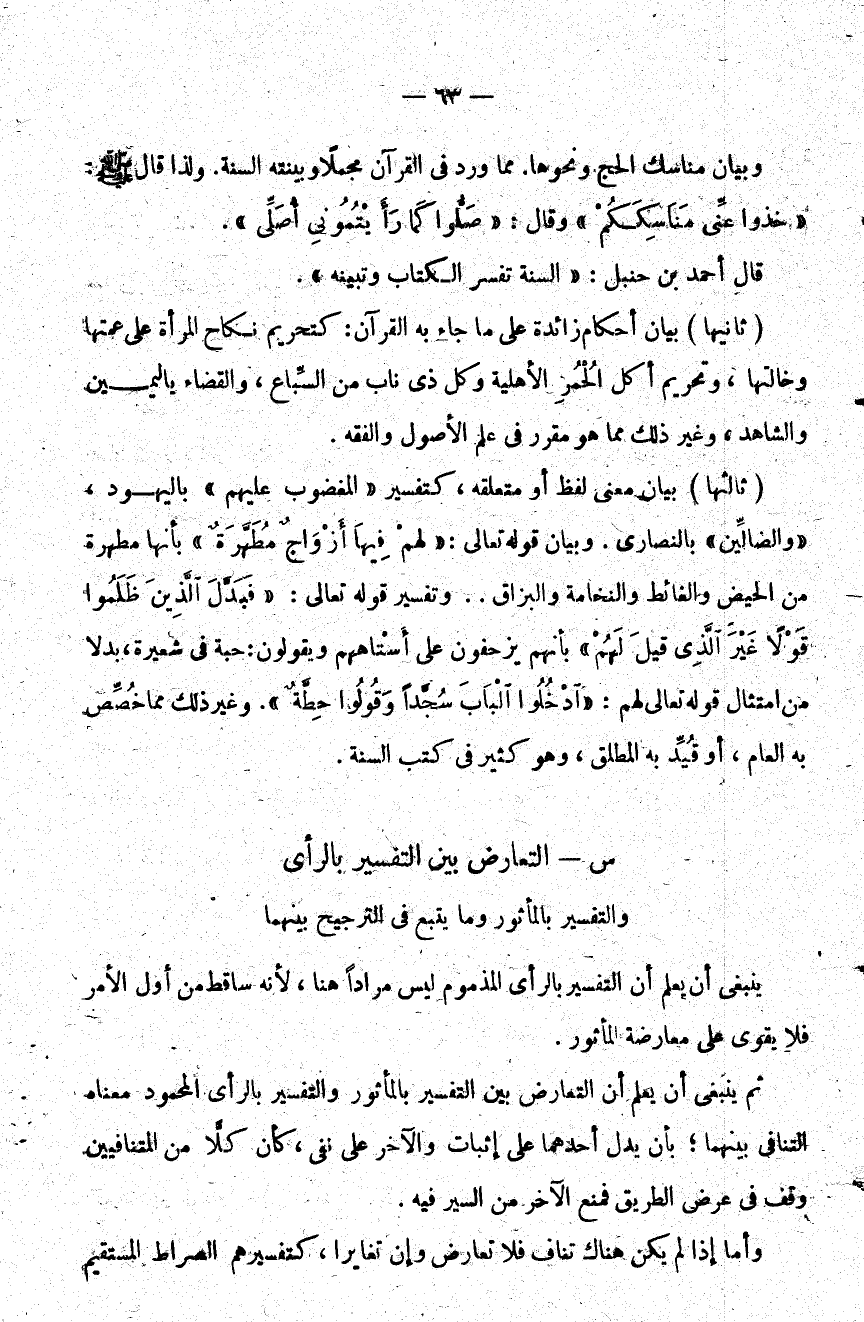 — ٦٣ —
وبيان مناسك الحج ونحوها. مما ورد فى القرآن مجملًا وبينته السنة. ولذا قال ﷺ:
« خذوا عنِّى مَنَاسِكَكُمْ » وقال : « صَلُّوا كَمَا رَأَيْتُمُونِي أُصَلِّى » .
قال أحمد بن حنبل : « السنة تفسر الكتاب وتبينه » .
( ثانيها ) بيان أحكام زائدة على ما جاء به القرآن: كتحريم نكاح المرأة على عمتها
وخالتها ، وتحريم أكل الْحُمُرِ الأهلية وكل ذى ناب من السِّباع ، والقضاء باليمين
والشاهد ، وغير ذلك مما هو مقرر فى علم الأصول والفقه .
( ثالثها ) بيان معنى لفظ أو متعلقه ، كتفسير « المغضوب عليهم » باليهود ،
«والضالِّين» بالنصارى . وبيان قوله تعالى :« لهمْ فِيهَا أَزْوَاجٌ مُطَهَّرَةٌ » بأنها مطهرة
من الحيض والغائط والنخامة والبزاق . . وتفسير قوله تعالى : « فَبَدَّلَ ٱلَّذِينَ ظَلَمُوا
قَوْلًا غَيْرَ ٱلَّذِى قِيلَ لَهُمْ» بأنهم يزحفون على أَسْتَاههم ويقولون: حبة فى شعيرة، بدلا
من امتثال قوله تعالى لهم : «ٱدْخُلُوا ٱلْبَابَ سُجَّداً وَقُولُوا حِطَّةٌ ». وغير ذلك مما خُصِّص
به العام ، أو قُيِّد به المطلق ، وهو كثير فى كتب السنة .
س — التعارض بين التفسير بالرأى
والتفسير بالمأثور وما يتبع فى الترجيح بينهما
ينبغى أن يعلم أن التفسير بالرأى المذموم ليس مراداً هنا ، لأنه ساقط من أول الأمر
فلا يقوى على معارضة المأثور .
ثم ينبغى أن يعلم أن التعارض بين التفسير بالمأثور والتفسير بالرأى المحمود معناه
التنافى بينهما ؛ بأن يدل أحدهما على إثبات والآخر على نفى ، كأن كلًّا من المتنافيين
وقف فى عرض الطريق فمنع الآخر من السير فيه .
وأما إذا لم يكن هناك تناف فلا تعارض وإن تغايرا ، كتفسيرهم الصراط المستقيم